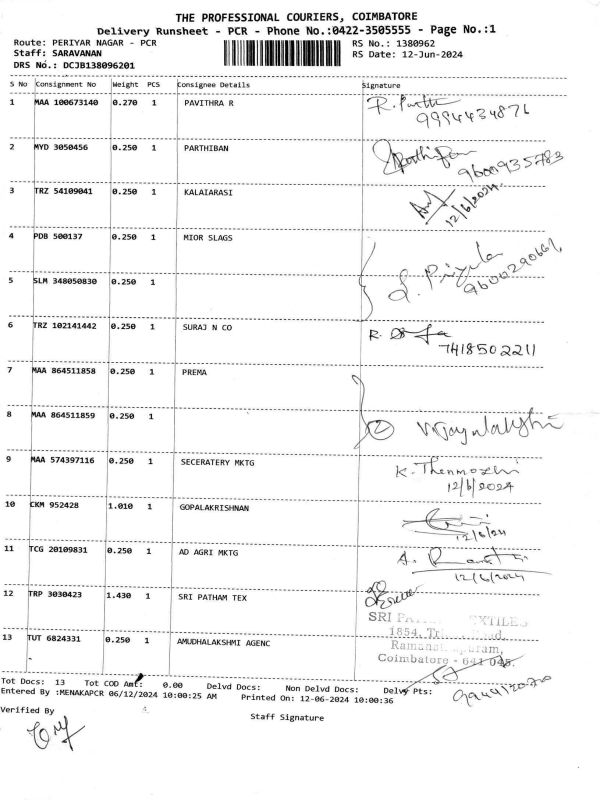 THE PROFESSIONAL COURIERS, COIMBATORE
Delivery Runsheet - PCR - Phone No.:0422-3505555 - Page No.:1
Route: PERIYAR NAGAR - PCR
RS No.: 1380962
Staff: SARAVANAN
RS Date: 12-Jun-2024
DRS No.: DCJB138096201
S No Consignment No Weight PCS Consignee Details Signature
1 MAA 100673140 0.270 1 PAVITHRA R
9994434876
2 MYD 3050456 0.250 1 PARTHIBAN Parthiban
9600935783
3 TRZ 54109041 0.250 1 KALAIARASI
12/6/2024.
4 PDB 500137 0.250 1 MIOR SLAGS
9600290661
5 SLM 348050830 0.250 1
6 TRZ 102141442 0.250 1 SURAJ N CO
7418502211
7 MAA 864511858 0.250 1 PREMA
8 MAA 864511859 0.250 1 2
9 MAA 574397116 0.250 1 SECERATERY MKTG K. Thenmozhi
12/6/2024
10 CKM 952428 1.010 1 GOPALAKRISHNAN
12/6/24
11 TCG 20109831 0.250 1 AD AGRI MKTG
12/6/2024
12 TRP 3030423 1.430 1 SRI PATHAM TEX
SRI
1854,
13 TUT 6824331 0.250 1 AMUDHALAKSHMI AGENC
Coimbatore - 641 045.
Tot Docs: 13 Tot COD Amt: 0.00 Delvd Docs: Non Delvd Docs: Delvy Pts:
Entered By :MENAKAPCR 06/12/2024 10:00:25 AM Printed On: 12-06-2024 10:00:36
Verified By
Staff Signature